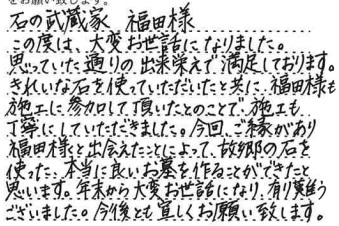 をお願い致します。
石の武蔵家 福田様
この度は、大変お世話になりました。
思っていた通りの出来栄えで満足しております。
きれいな石を使っていただいたと共に、福田様も
施工に参加して頂いたとのことで、施工も
丁寧にしていただきました。今回、ご縁があり
福田様と出会えたことによって、故郷の石を
使った、本当に良いお墓を作ることができたと
思います。年末から大変お世話になり、有り難う
ございました。今後とも宜しくお願い致します。